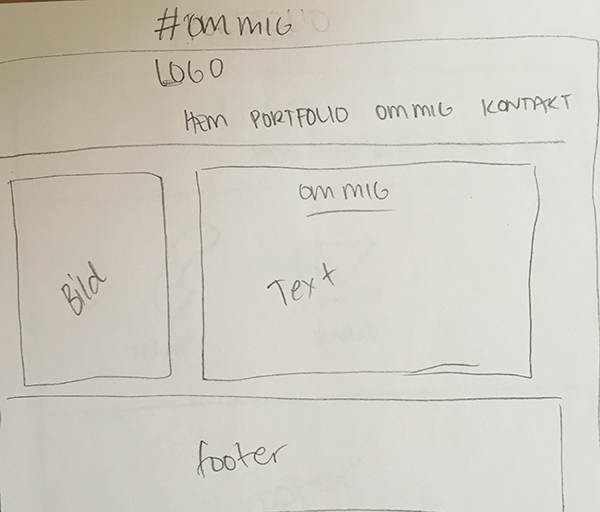 #OMMIG
LOGO
HEM PORTFOLIO OMMIG KONTAKT
OM MIG
Bild
Text
footer